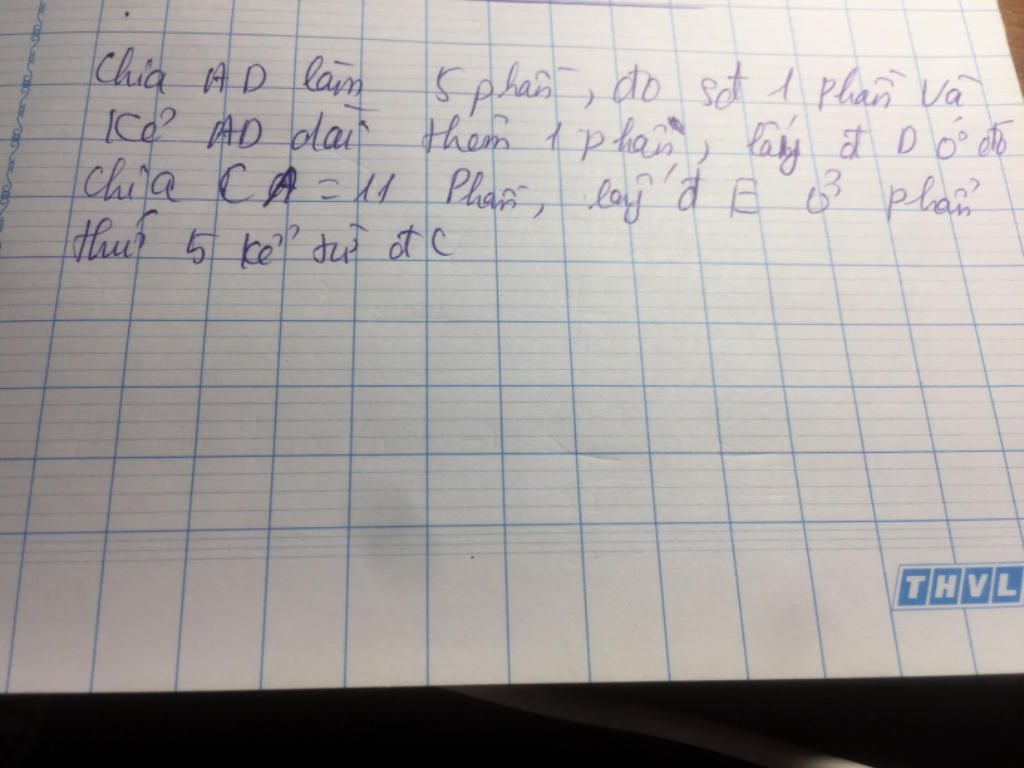 Chia AD làm 5 phần, đo sđ 1 phần và
Kẻ AD dài thêm 1 phần, lấy đ D ở đó
Chia CA = 11 Phần, lấy đ E ở phần
thứ 5 kể từ đ C
THVL